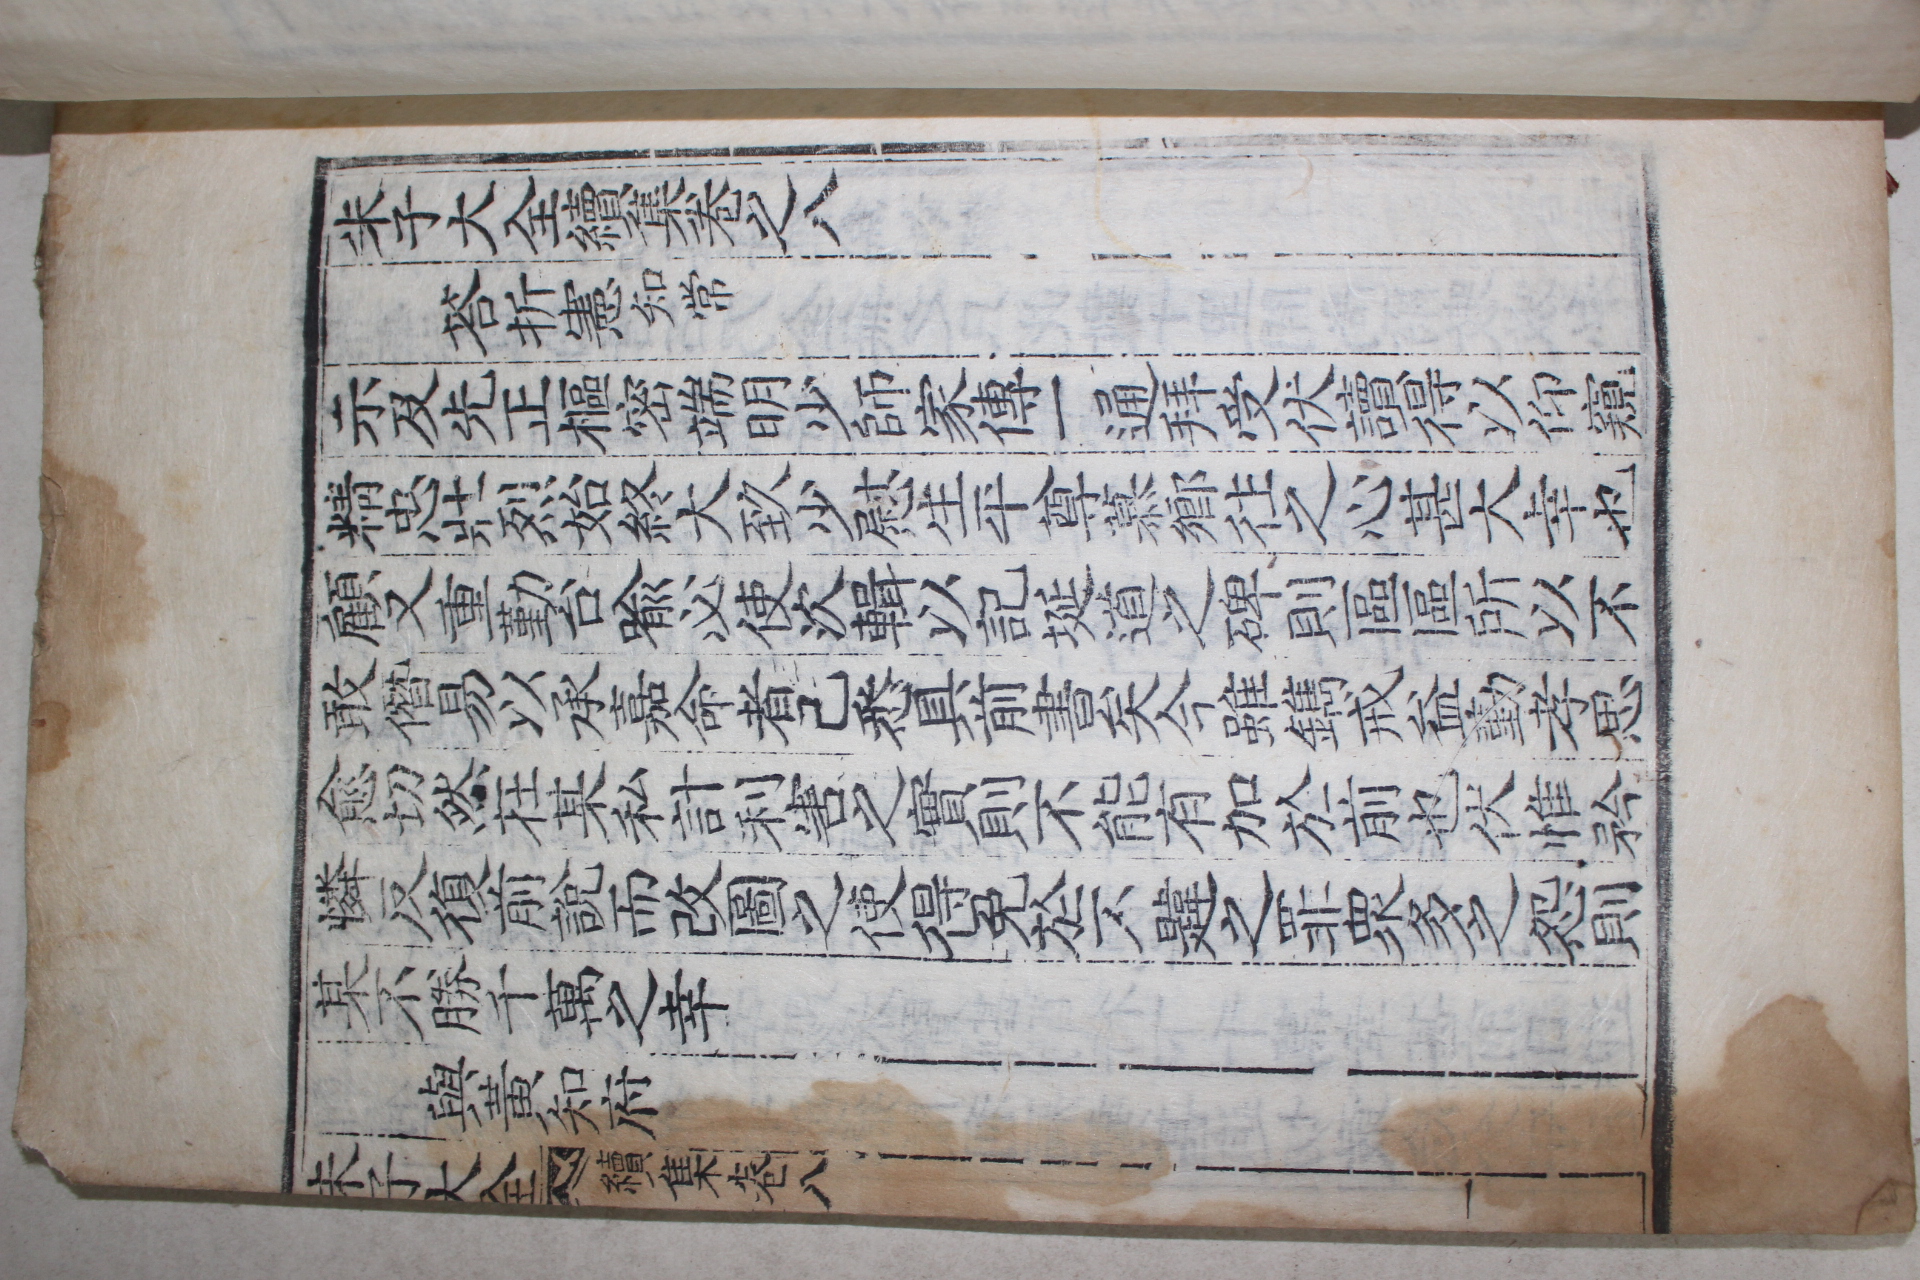 朱子大全續集卷之八
答折憲知常
示及先正樞密端明少師家傳一通拜受伏讀得以仰窺
精忠壯烈始終大致少慰生平尊慕鄉往之心甚大幸也
顧又重勤台喩必使次輯以記埏道之碑則區區所以不
敢僭易以承嘉命者已悉具前書矣今雖鐫戒益勤孝思
愈切然在某私計利害之實則不能有加於前也伏惟矜
憐反復前說而改圖之使得免於不韙之罪衆多之怨則
某不勝千萬之幸
與黃知府
朱子大全 續集卷八 一